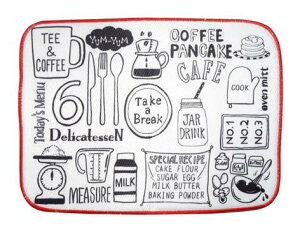 TEE &
COFFEE
YUM-YUM
COFFEE
PANCAKE
CAFE
Today's Menu
6
Take
a
Break
COOK
oven mitt
JAR
DRINK
NO.1
NO.2
NO.3
DelicatesseN
MEASURE
MILK
SPECIAL RECIPE
CAKE FLOUR
SUGAR EGG
MILK BUTTER
BAKING POWDER